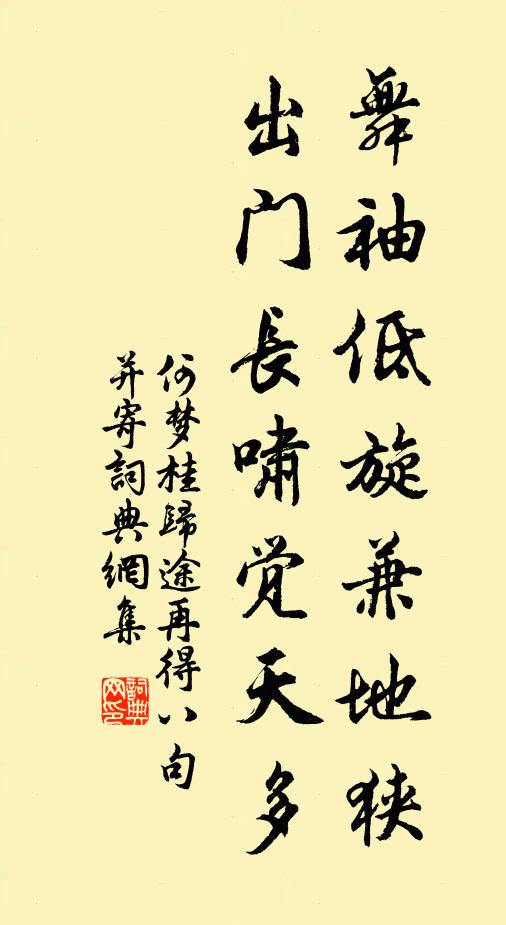 舞袖低旋兼地狹
出门長嘯觉天多
何梦桂歸途再得八句
并寄詞典網集
詞典
网印